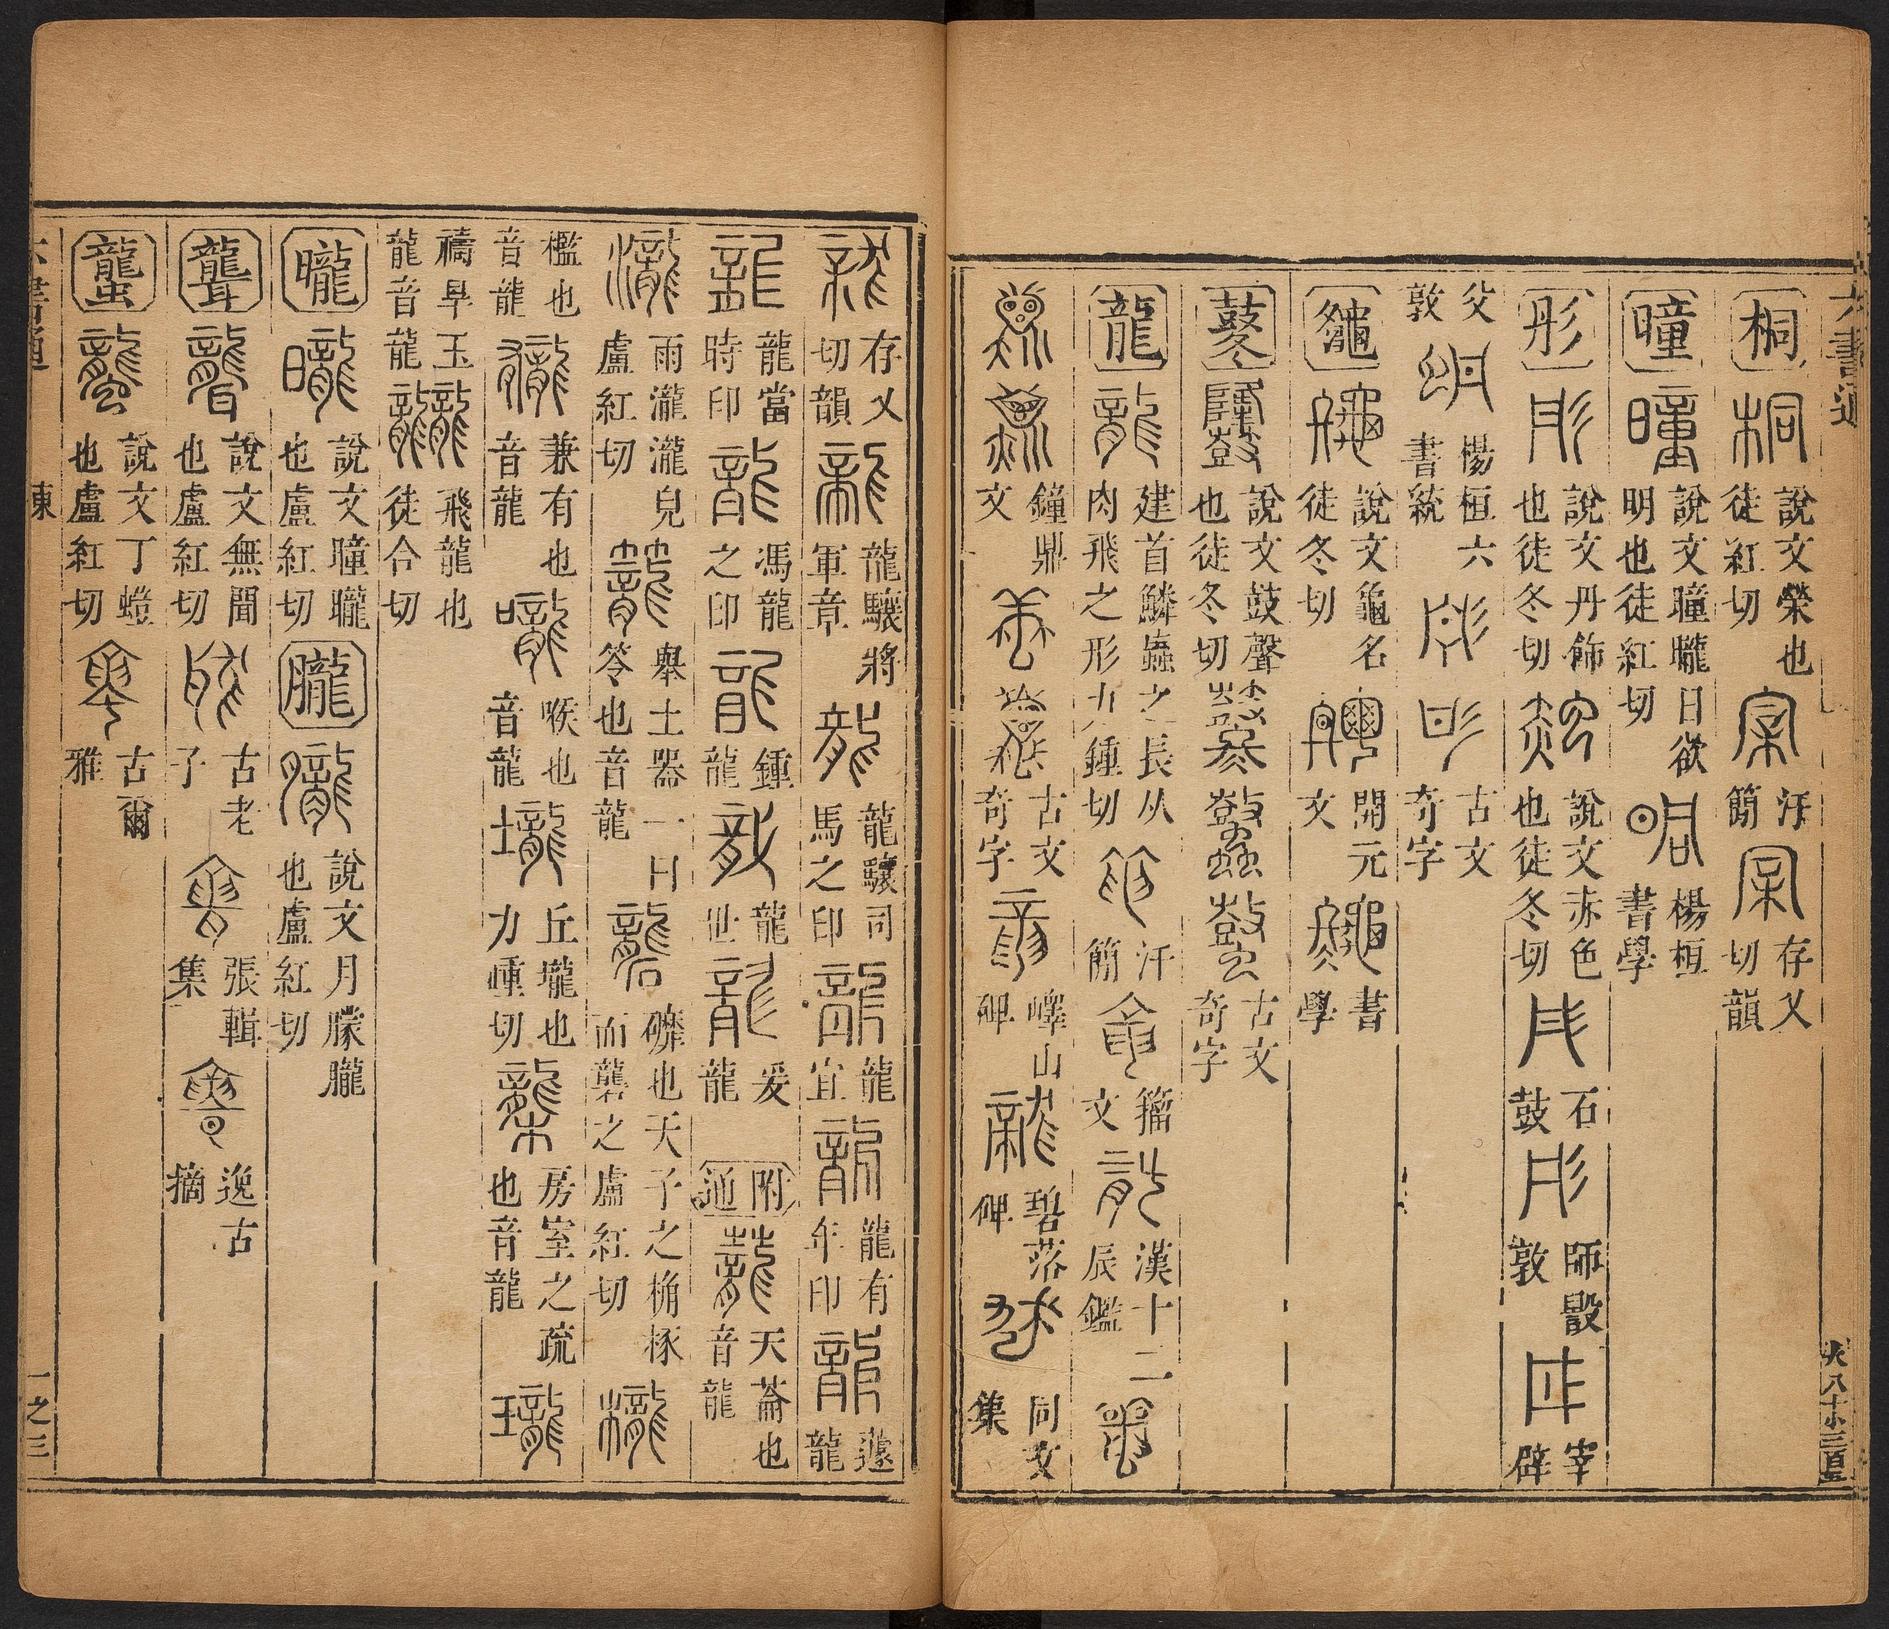 六書通
桐 說文榮也徒紅切 汗簡 存乂切韻
曈 說文曈曨日欲明也徒紅切 楊桓書學
彤 說文丹飾也徒冬切 說文赤色也徒冬切 石鼓 師毀敦 宰辟
父敦 楊桓六書統 古文奇字
說文龜名徒冬切 開元文 書學
鼕 說文鼓聲也徒冬切 古文奇字
龍 建首鱗蟲之長从肉飛之形力鍾切 汗簡 籀文 漢十二辰鑑
鐘鼎文 古文奇字 嶧山碑 碧落碑 同文集
存乂切韻 龍驤將軍章 龍驤司馬之印 龍宜 龍有年印 龍
龍當時印 馮龍之印 鍾龍 龍世 爰龍 附通 天蘥也音龍
瀧 雨瀧瀧皃盧紅切 舉土器一曰笭也音龍 礱 礦也天子之桷椓而礱之盧紅切 櫳
檻也音龍 兼有也音龍 嚨 喉也音龍 壠 丘壠也力歱切 房室之疏也音龍 瓏
禱旱玉龍音龍 龖 飛龍也徒合切
曨 說文曈曨也盧紅切 朧 說文月朦朧也盧紅切
聾 說文無聞也盧紅切 古老子 張輯集 逸古摘
蠪 說文丁螘也盧紅切 古爾雅
東
一之三